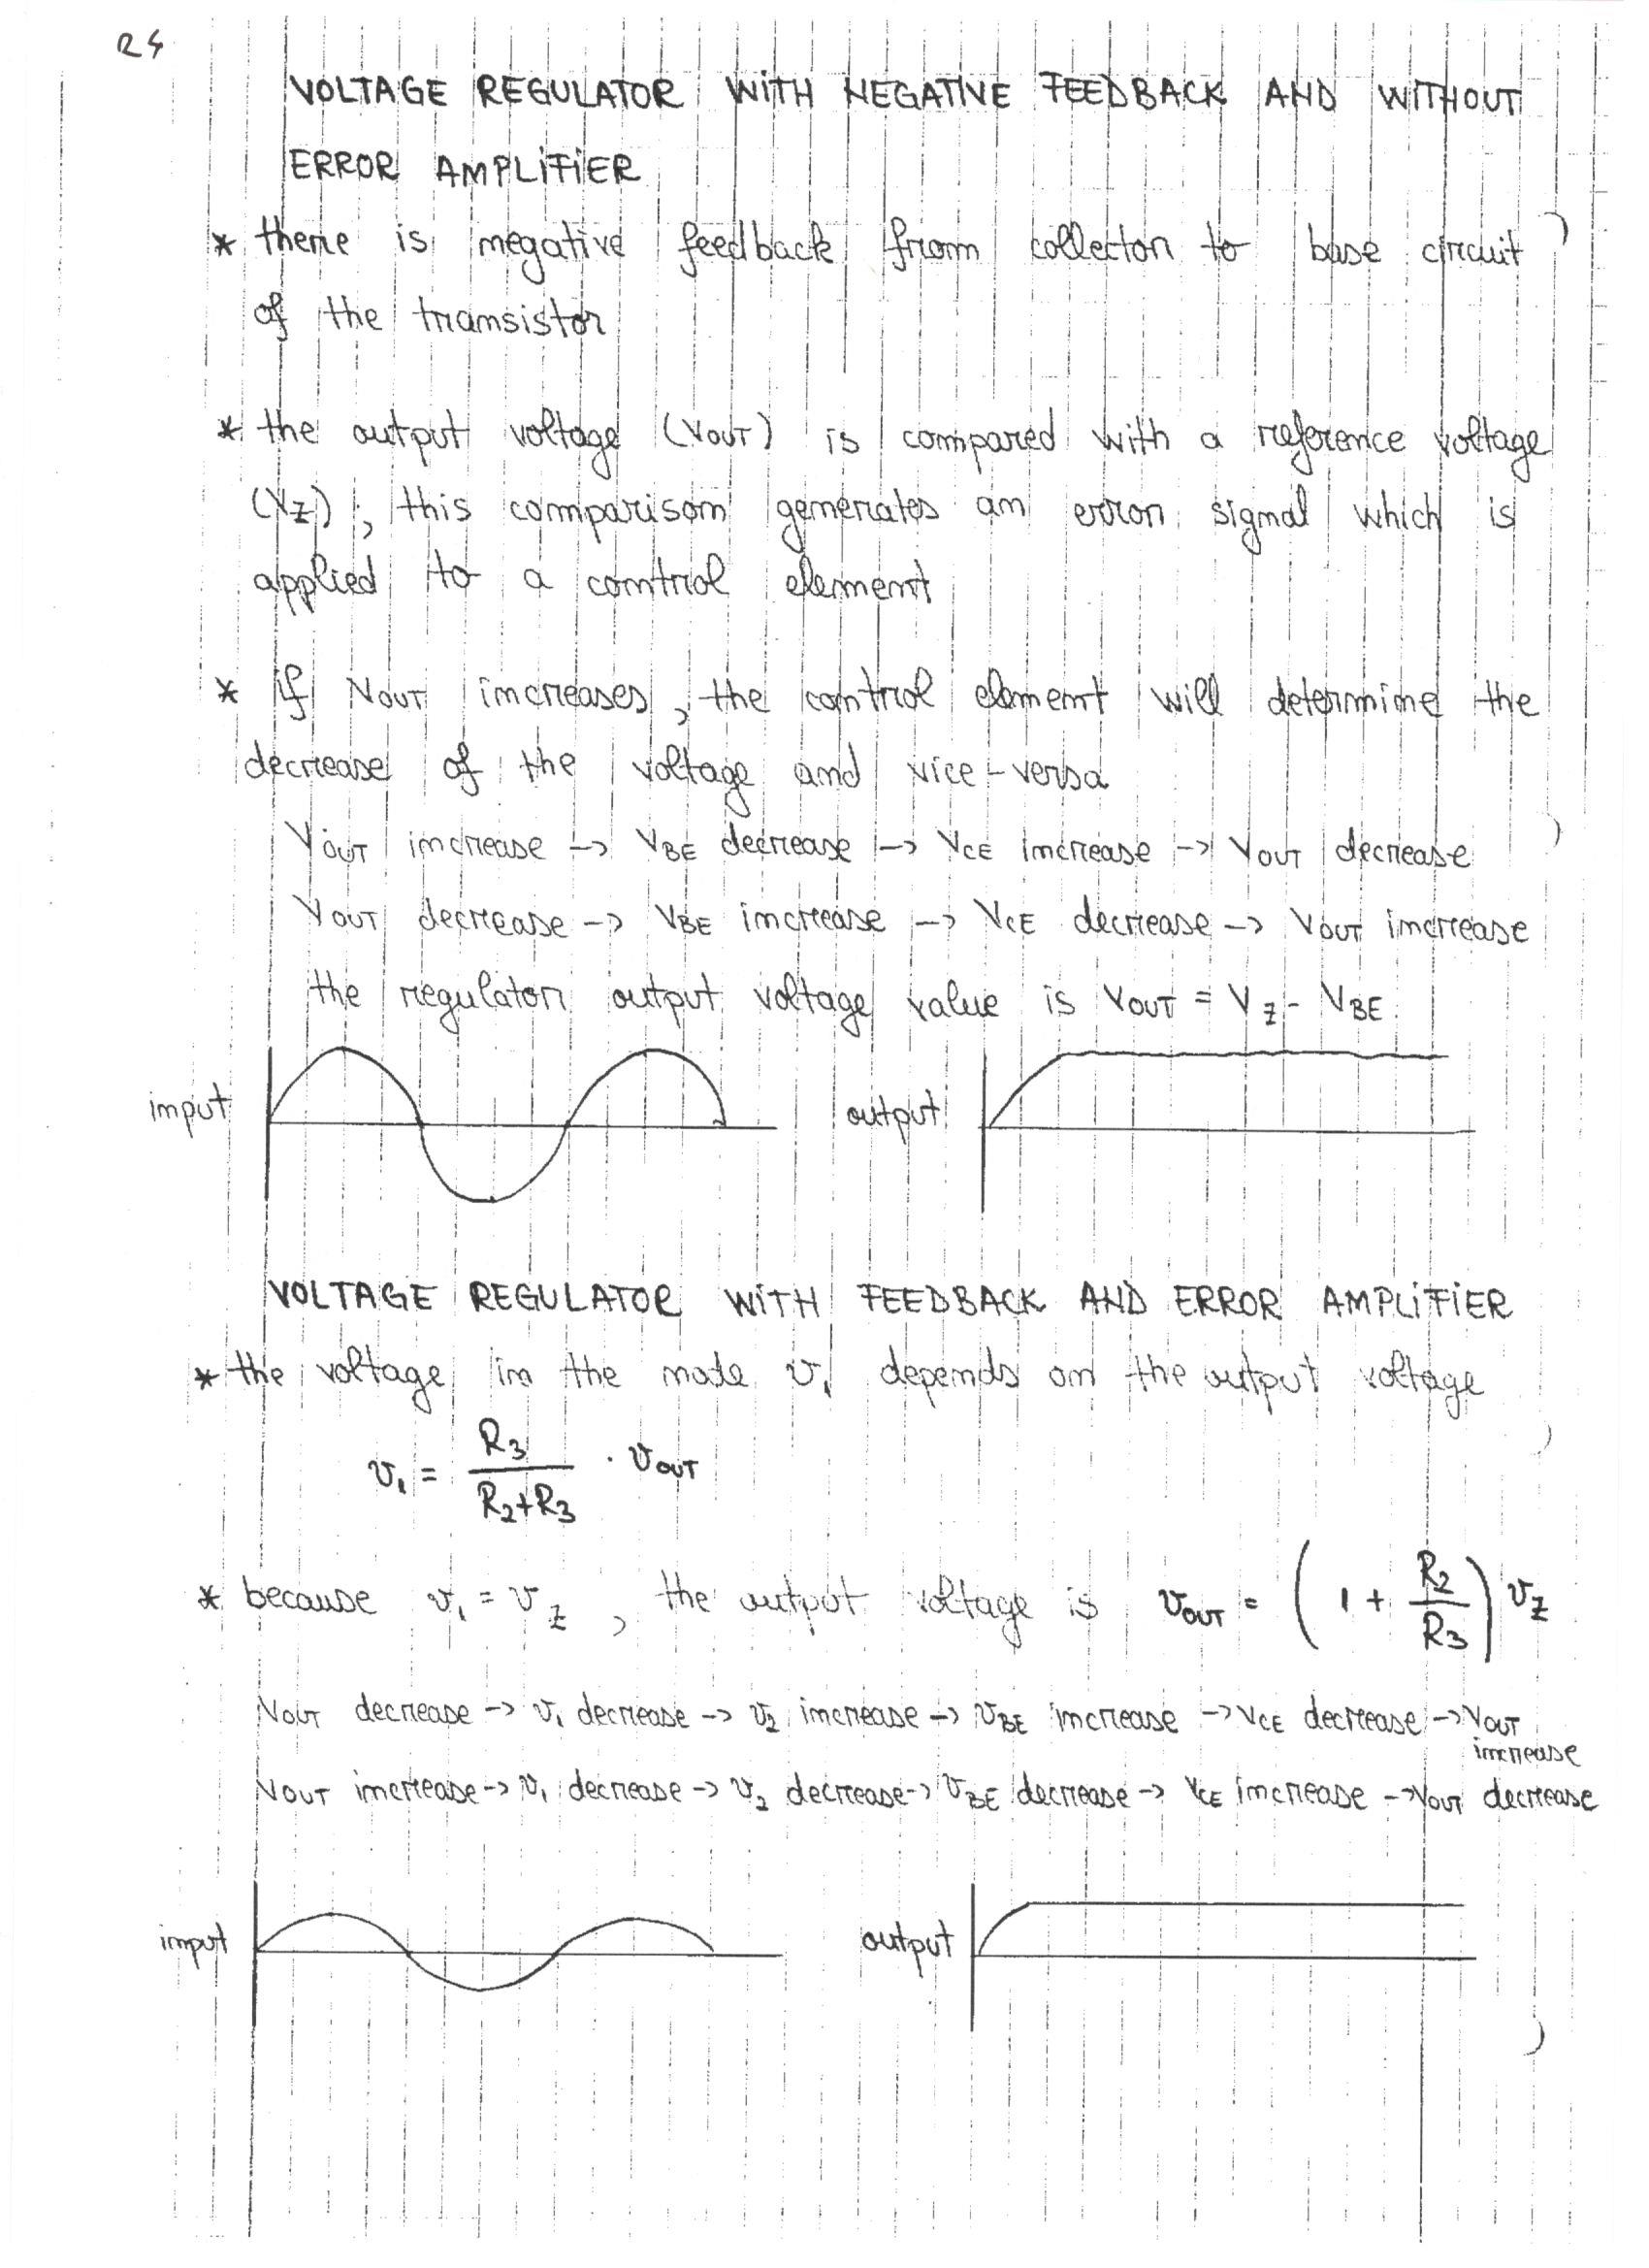 R4
VOLTAGE REGULATOR WITH NEGATIVE FEEDBACK AND WITHOUT
ERROR AMPLIFIER
* there is negative feedback from collector to base circuit
of the transistor
* the output voltage (VOUT) is compared with a reference voltage
(VZ), this comparison generates an error signal which is
applied to a control element
* if VOUT increases, the control element will determine the
decrease of the voltage and vice-versa
VOUT increase -> VBE decrease -> VCE increase -> VOUT decrease
VOUT decrease -> VBE increase -> VCE decrease -> VOUT increase
the regulator output voltage value is VOUT = VZ - VBE
input output
VOLTAGE REGULATOR WITH FEEDBACK AND ERROR AMPLIFIER
* the voltage in the node v1 depends on the output voltage
v1 = R3 / (R2+R3) · VOUT
* because v1 = vZ, the output voltage is vOUT = (1 + R2/R3) vZ
VOUT decrease -> v1 decrease -> v2 increase -> vBE increase -> VCE decrease -> VOUT
increase
VOUT increase -> v1 decrease -> v2 decrease -> vBE decrease -> VCE increase -> VOUT decrease
input output